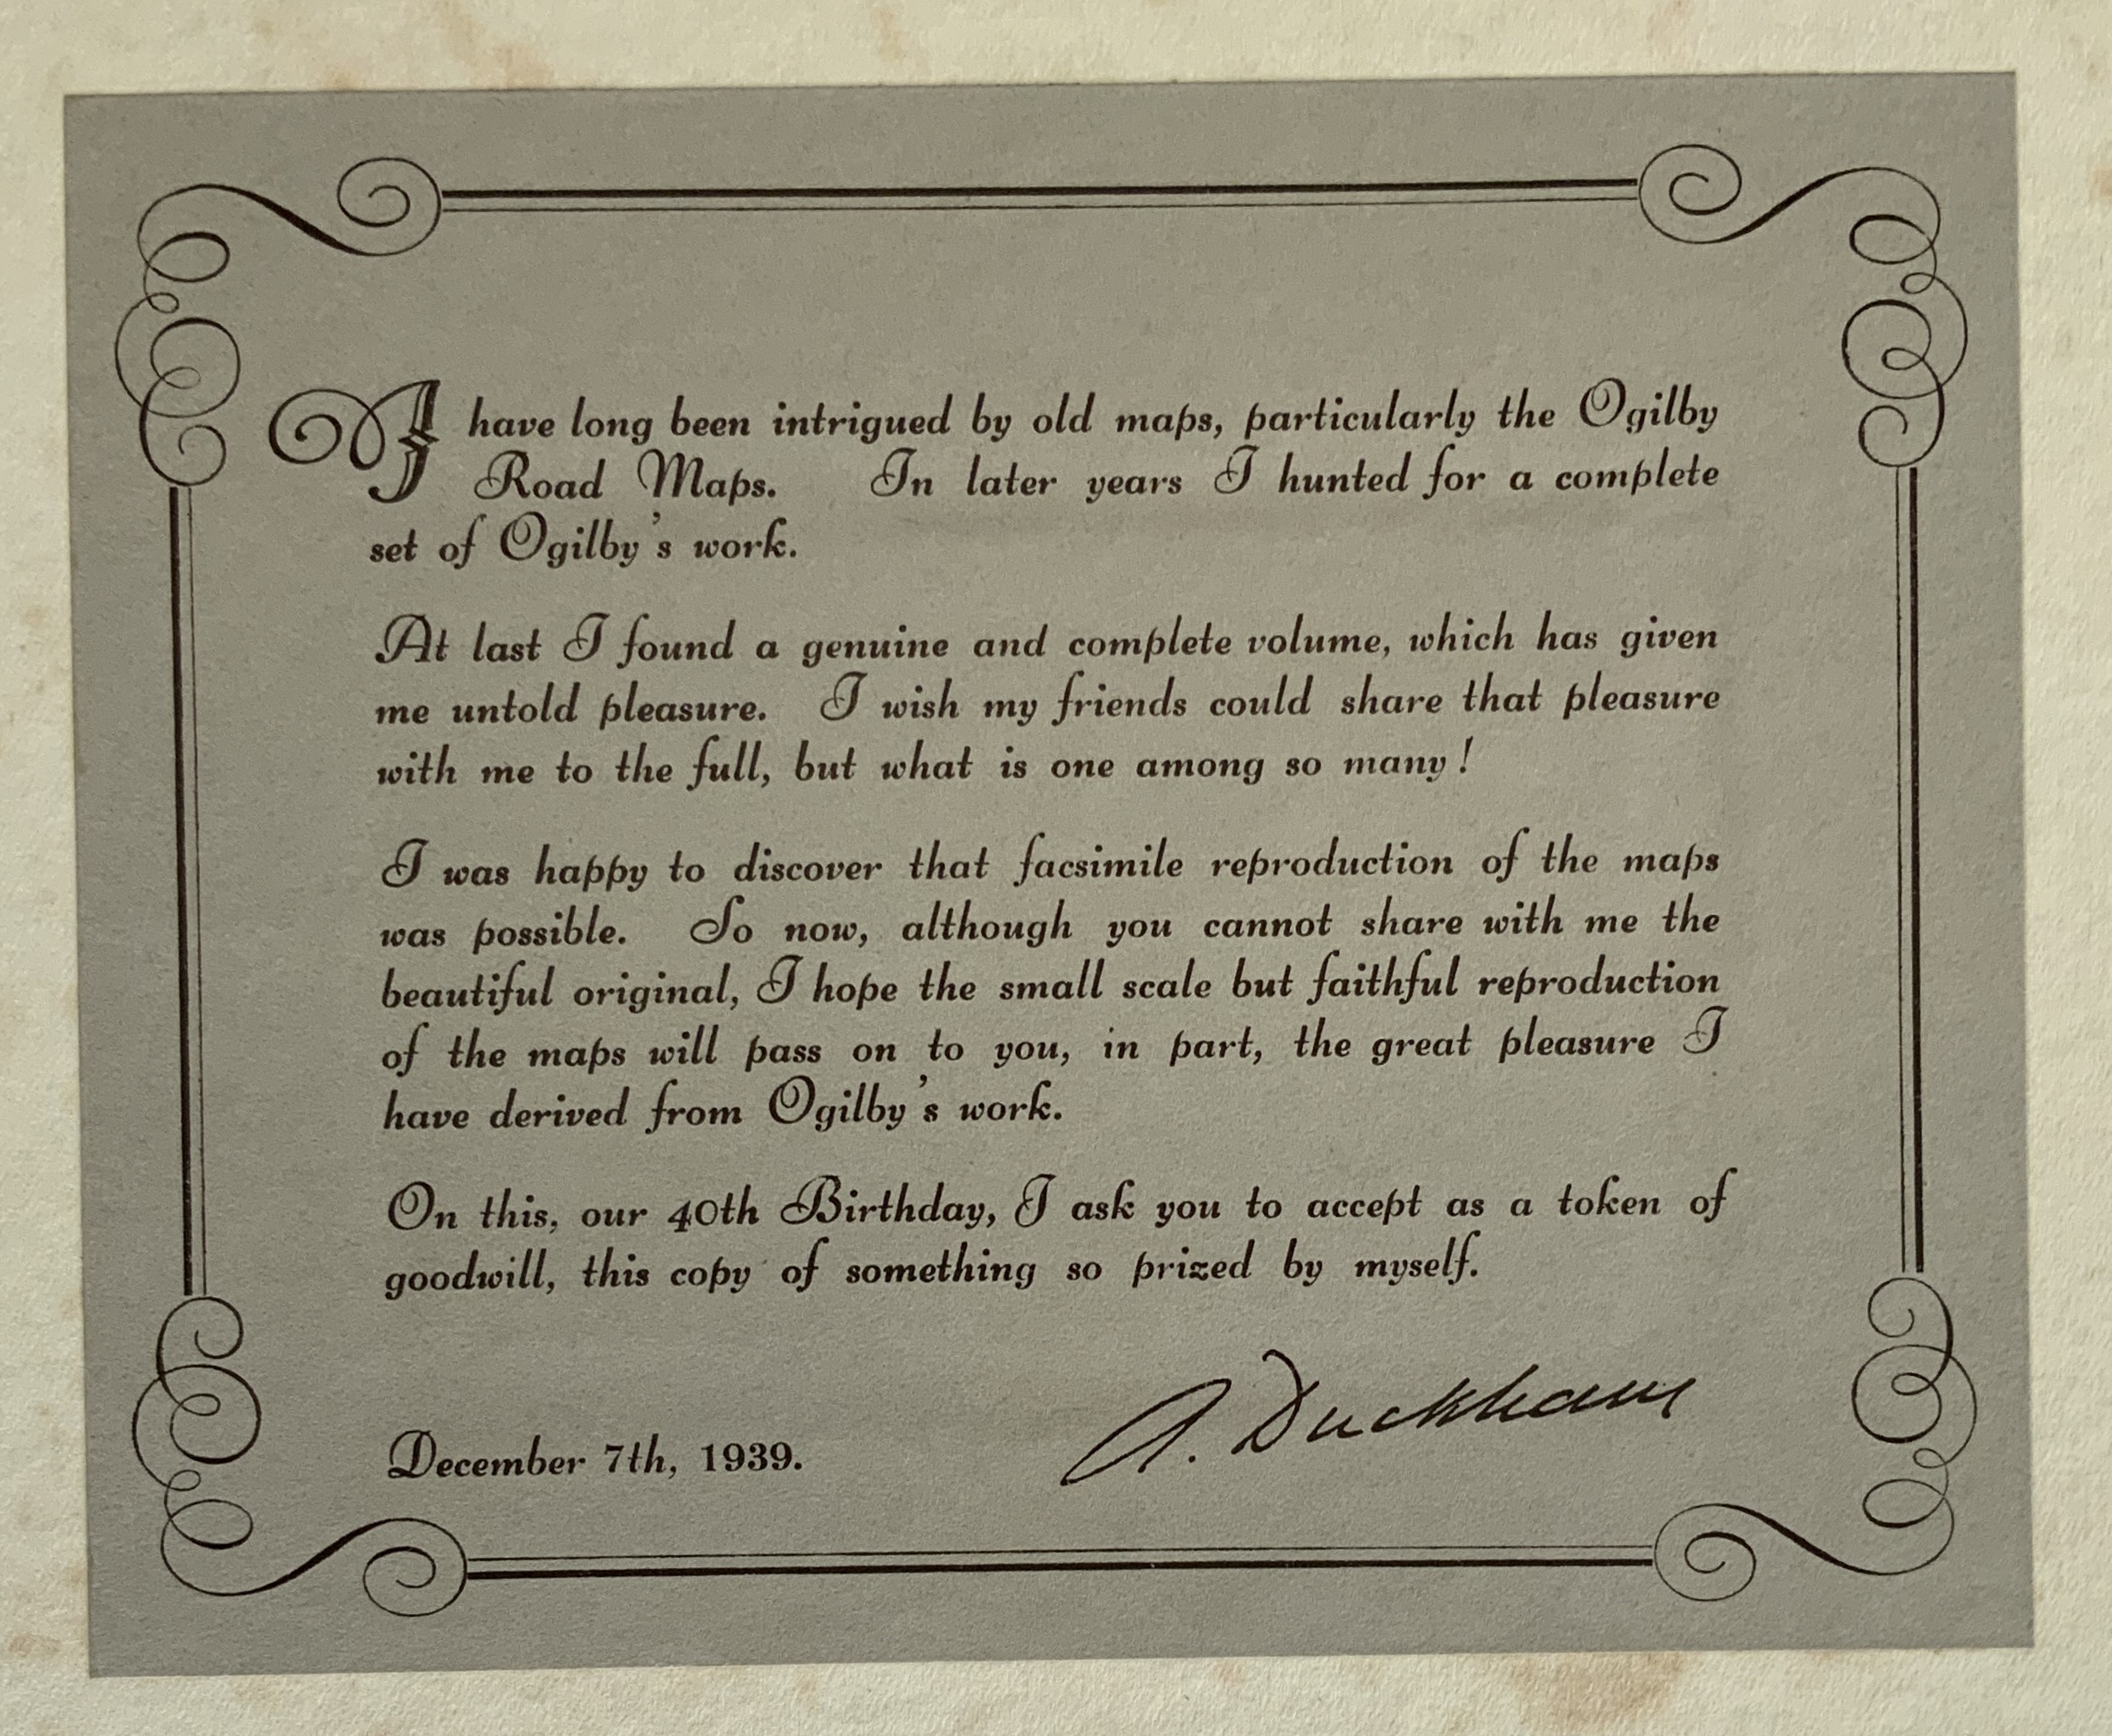 I have long been intrigued by old maps, particularly the Ogilby
Road Maps. In later years I hunted for a complete
set of Ogilby's work.
At last I found a genuine and complete volume, which has given
me untold pleasure. I wish my friends could share that pleasure
with me to the full, but what is one among so many!
I was happy to discover that facsimile reproduction of the maps
was possible. So now, although you cannot share with me the
beautiful original, I hope the small scale but faithful reproduction
of the maps will pass on to you, in part, the great pleasure I
have derived from Ogilby's work.
On this, our 40th Birthday, I ask you to accept as a token of
goodwill, this copy of something so prized by myself.
A. Duckham
December 7th, 1939.